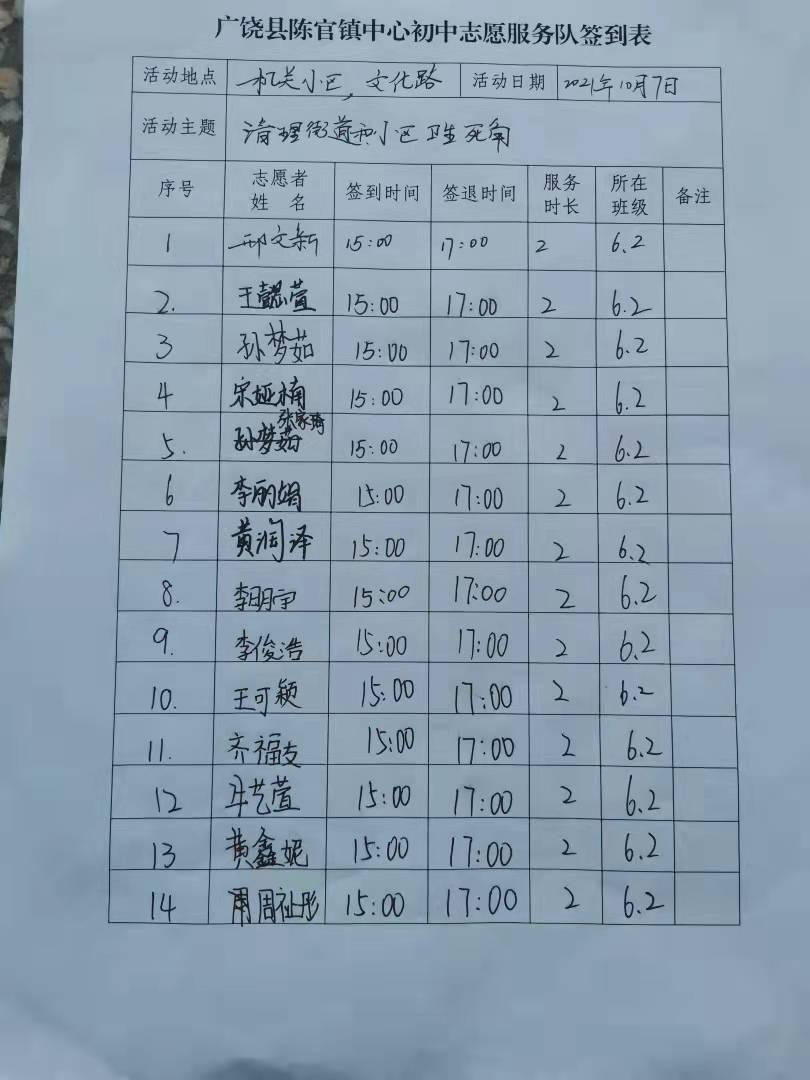 广饶县陈官镇中心初中志愿服务队签到表
活动地点 机关小区，文化路 活动日期 2021年10月7日
活动主题 清理街道和小区卫生死角
序号 志愿者姓名 签到时间 签退时间 服务时长 所在班级 备注
1 邢文新 15:00 17:00 2 6.2
2. 王懿萱 15:00 17:00 2 6.2
3 孙梦茹 15:00 17:00 2 6.2
4 宋娅楠 15:00 17:00 2 6.2
5. 张家琦 15:00 17:00 2 6.2
6 李丽娟 15:00 17:00 2 6.2
7 黄润泽 15:00 17:00 2 6.2
8. 李明宇 15:00 17:00 2 6.2
9. 李俊浩 15:00 17:00 2 6.2
10. 王可颖 15:00 17:00 2 6.2
11. 齐福友 15:00 17:00 2 6.2
12 牟艺萱 15:00 17:00 2 6.2
13 黄鑫妮 15:00 17:00 2 6.2
14 周祉彤 15:00 17:00 2 6.2